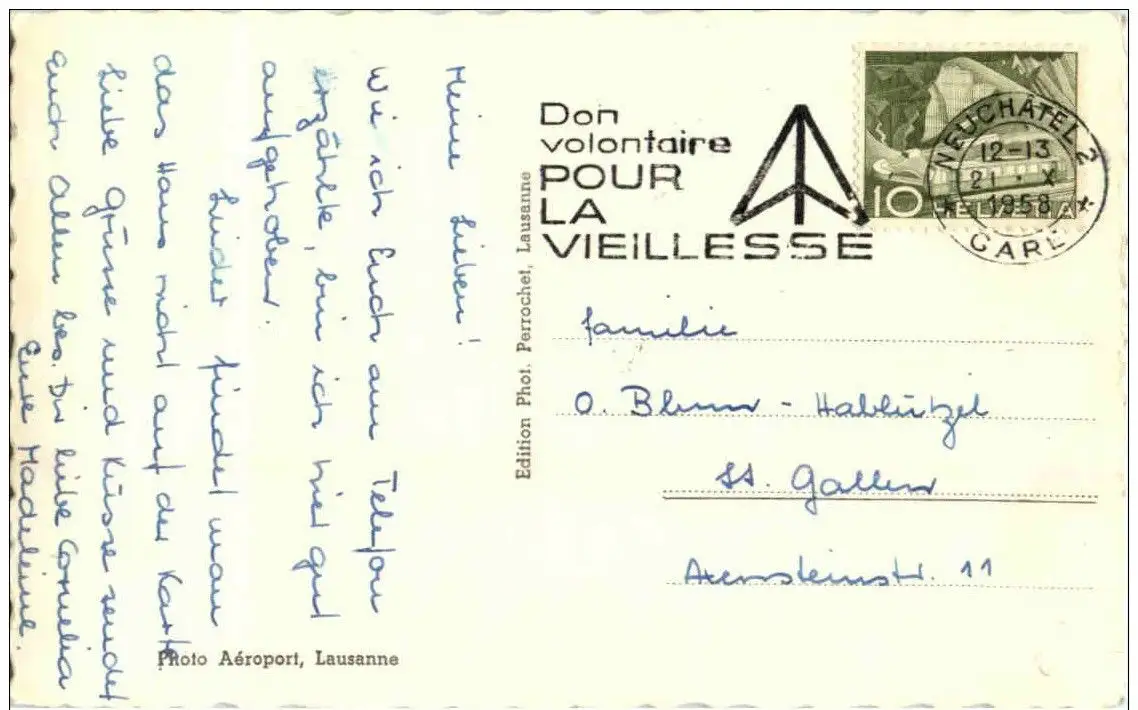 Meine Lieben!
Wie ich Euch am Telefon
erzählte, bin ich hier gut
aufgehoben.
Leider findet man
das Haus nicht auf der Karte.
Liebe Grüsse und Küsse sendet
Euch allen bes. Dir liebe Cornelia
Eure Madeleine.
Photo Aéroport, Lausanne
Edition Phot. Perrochet, Lausanne
Don
volontaire
POUR
LA
VIEILLESSE
10 HELVETIA
NEUCHÂTEL 2
12-13
21. X
1958
GARE
Familie
O. Blum - Hablützel
St. Gallen
Axensteinstr. 11